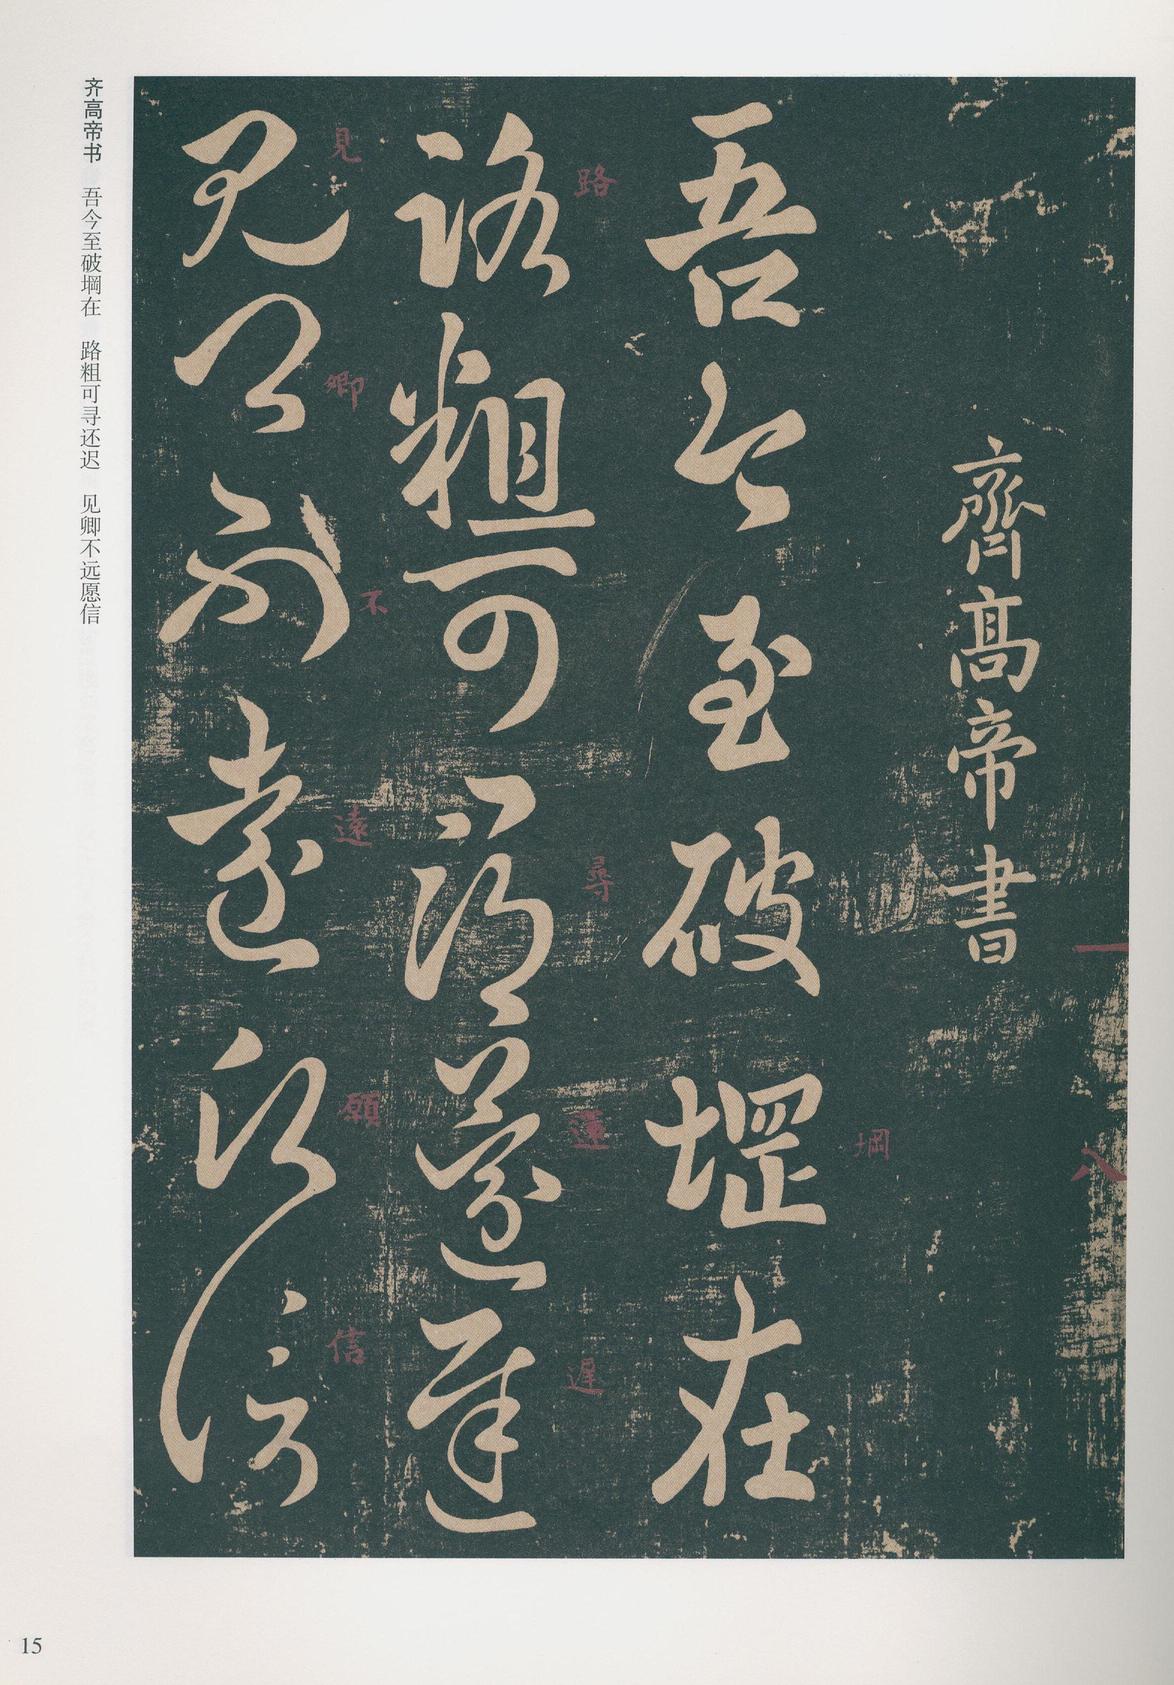 齊高帝書
吾今至破堽在
路粗可尋還遲
見卿不遠願信
一
八
堈
路
尋
還
遲
見
卿
不
遠
願
信
齐高帝书 吾今至破堈在 路粗可寻还迟 见卿不远愿信
15